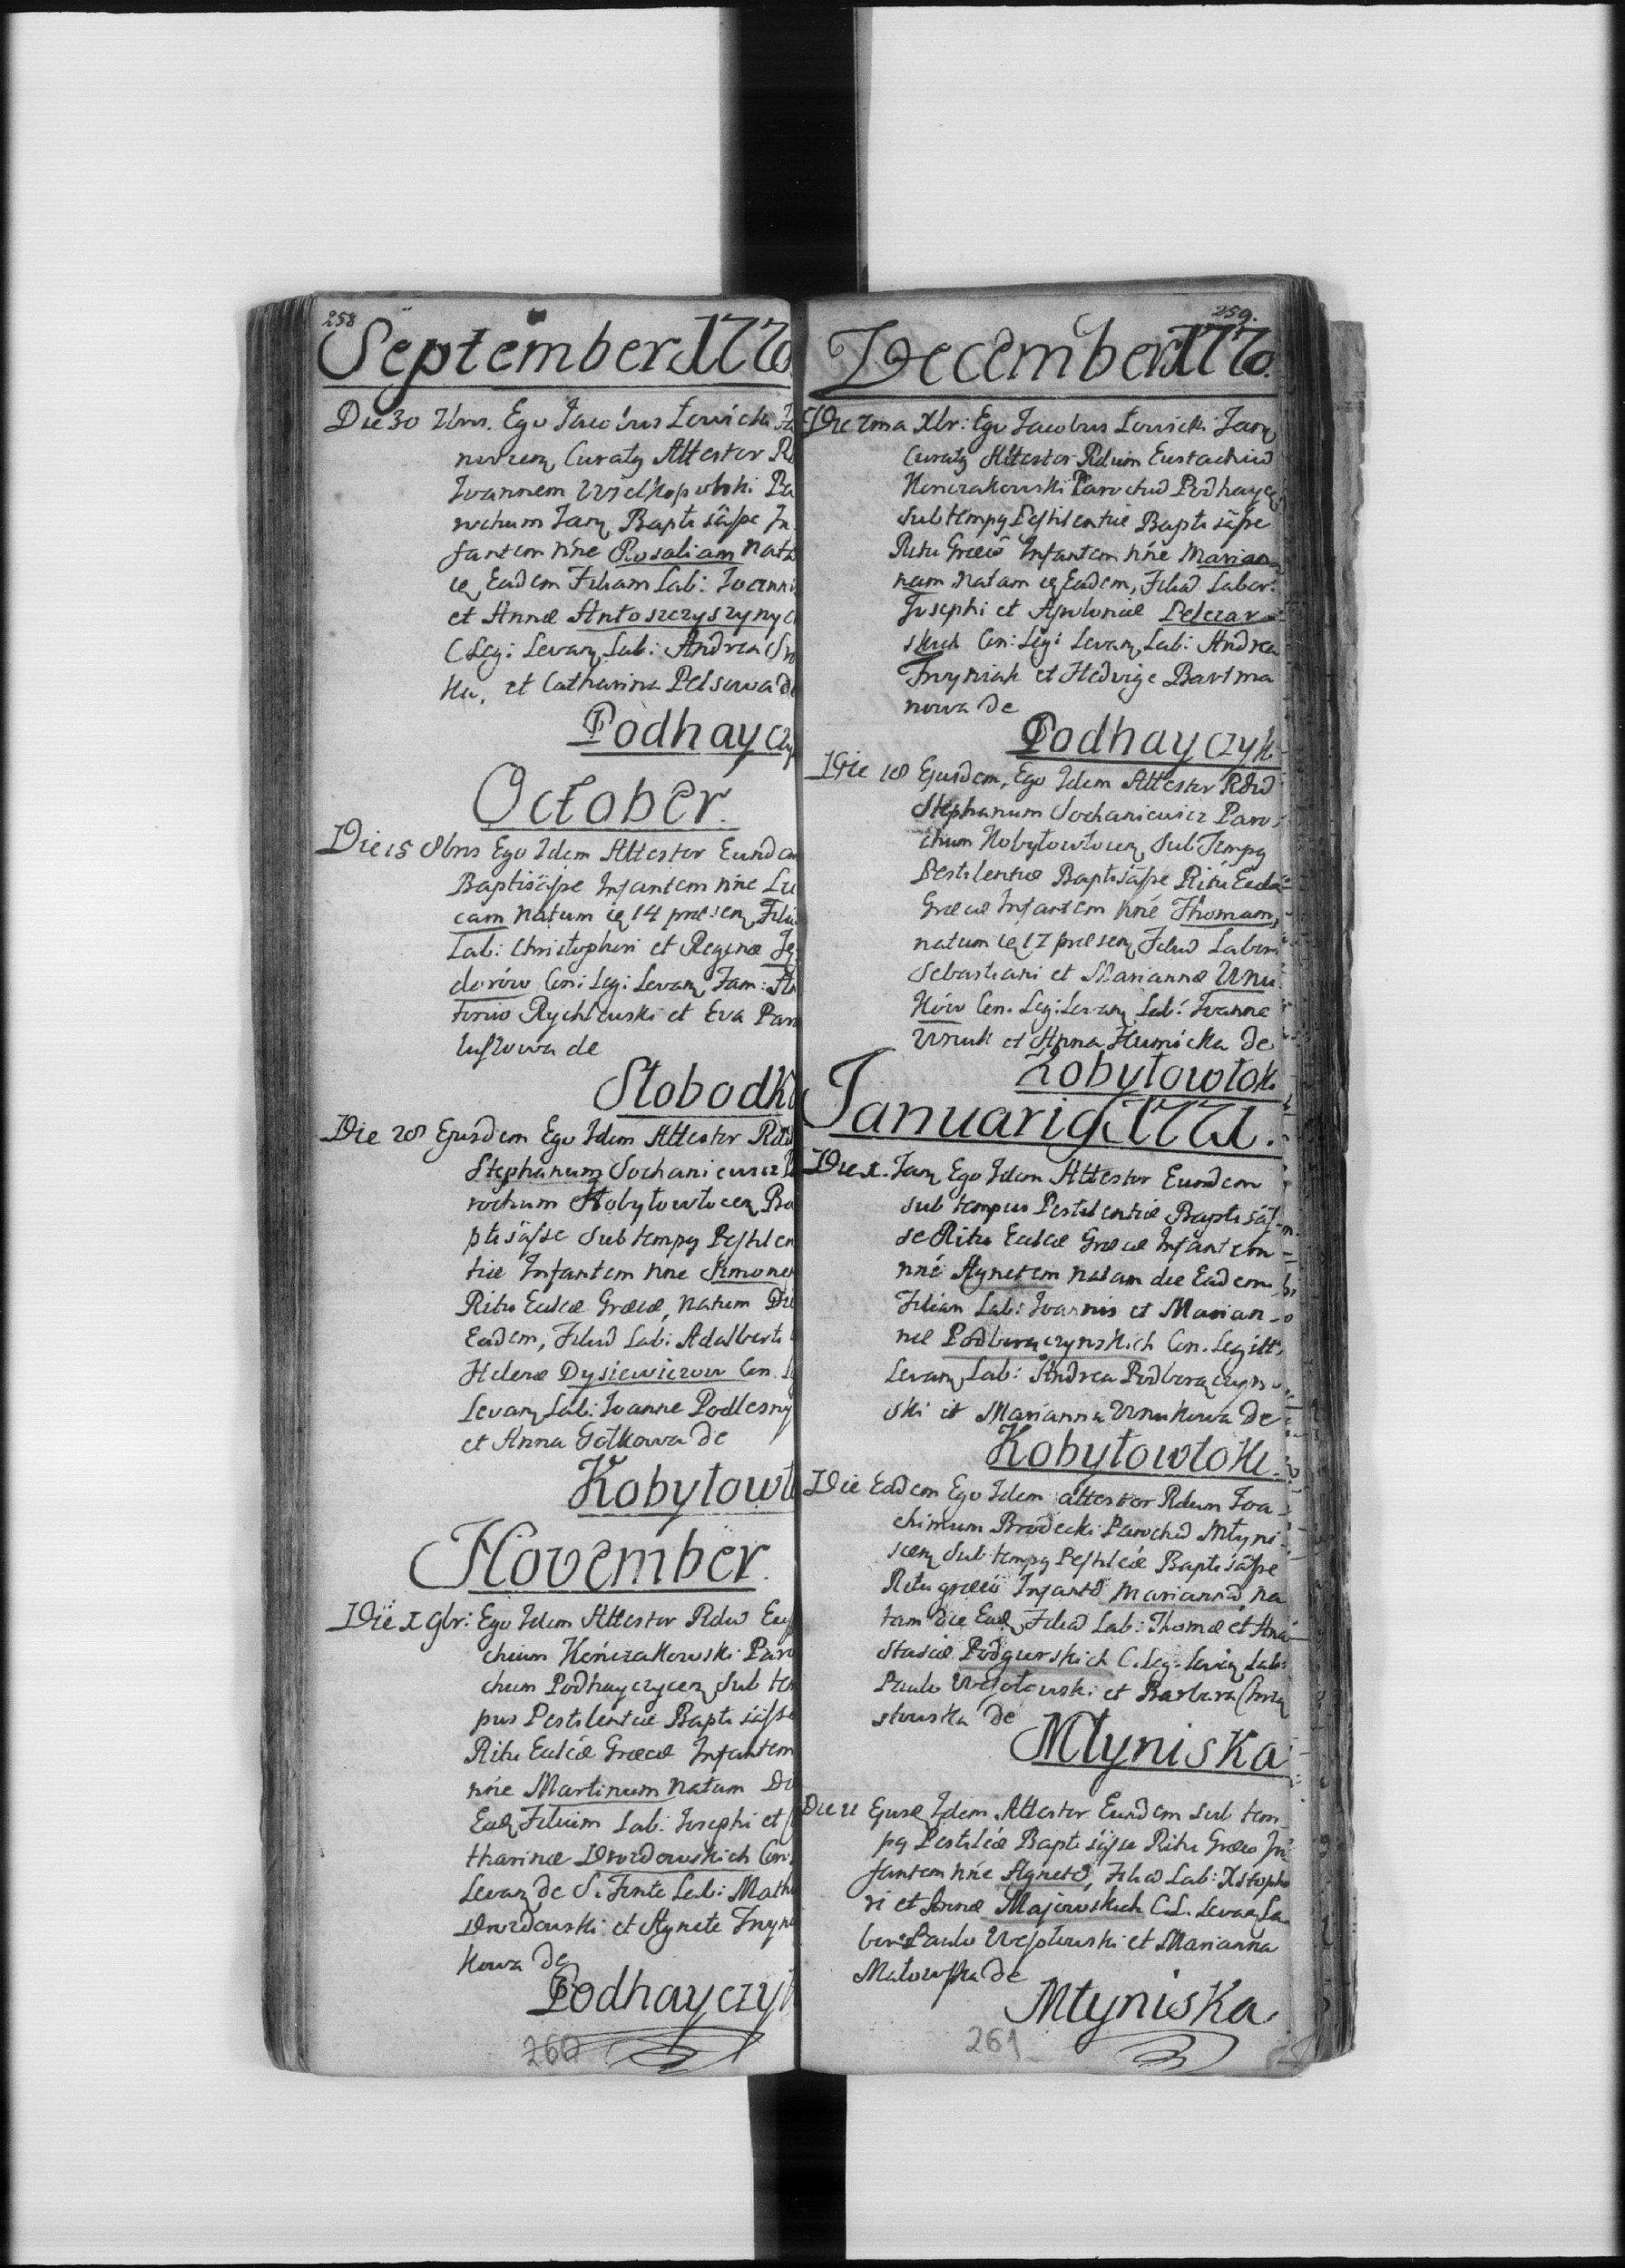 258
September 1770
Die 30 7bris. Ego Jacobus Łowicki Ja
novien Curatg Attestor R
Joannem Wielkopolski Pa
rochum Jan Baptisasse In
fantem nne Rosaliam nata
Eadem Filiam Lab: Joanni
et Annæ Antoszczyszynyc
C Leg: Levan Lab: Andrea
ka, et Catharina Pelsowa de
Podhaycz
October.
Die 15 8bris Ego Idem Attestor Eundem
Baptisasse Infantem nne Lu
cam Natum 14 præsen Filiu
Lab: Christophori et Reginæ
dorów Con: Leg: Levan Fam:
Rychlewski et Eva Paw
luszowa de
Słobodki
Die 28 Ejusdem Ego Idem Attestor Rdu
Stephanum Sochaniewicz Pa
rochum Kobyłowłocen Ba
ptisasse Sub tempg Pestilen
tiæ Infantem nne Simone
Ritu Ecclæ Græcæ, natum Die
Eadem, Filiu Lab: Adalberti
Helenæ Dysiewiczow Con. L
Levan Lab: Joanne Podlesny
et Anna Gotkowa de
Kobyłowł
November.
Die I 9br: Ego Idem Attestor Rdu Eus
chium Kończakowski Paro
chum Podhayczycen Sub tem
pus Pestilentiæ Baptisasse
Ritu Ecclæ Græcæ Infantem
nne Martinum Natum Di
Ead Filium Lab: Josephi et
tharinæ Drozdowskich Con.
Levan de S. Fonte Lab: Math
Drozdowski et Agnete
kowa de
Podhayczyk
260
259.
December 1770.
Die 7ma Xbr: Ego Jacobus Łowicki Jan
Curatg Attestor Rdum Eustachiu
Konczakowski Parochu Podhaycz
Sub tempg Pestilentiæ Baptisasse
Ritu Græco Infantem nne Marian
nam Natam Eadem, Filia Labor:
Josephi et Apoloniæ Pelczar
skich Con: Leg: Levan Lab: Andrea
et Hedvige Bartma
nowa de
Podhayczyk
Die 18 Ejusdem, Ego Idem Attestor Rdu
Stephanum Sochaniewicz Paro
chum Kobyłowłocen Sub Tempg
Pestilentiæ Baptisasse Ritu Eccles
Græcæ Infantem nne Thomam,
natum 17 præsen Filiu Labori
Sebastiani et Mariannæ Wnu
ków Con. Leg: Levan Lab: Joanne
Wnuk et Anna Humicka de
Kobyłowłok
Januarig 1771.
Die I. Jan Ego Idem Attestor Eundem
sub tempus Pestilentiæ Baptisas
se Ritu Ecclæ Græcæ Infantem
nne Agnetem natam die Eadem
Filiam Lab: Joannis et Marian
næ Podbereczynskich Con. Legitt:
Levan Lab: Andrea Podbereczyn
ski et Marianna Wnukowa De
Kobyłowłoki.
Die Eadem Ego Idem attestor Rdum Joa
chimum Brodecki Parochu Młyni
scen Sub tempg Pestilciæ Baptisasse
Ritu græco Infante Marianna, na
tam die Ead Filia Lab: Thomæ et Ana
stasiæ Podgurskich C. Leg. Levan Lab:
Paulo Wesołowski et Barbara
stowska de
Młyniska
Die 11 Ejusd Idem Attestor Eundem sub tem
pg Pestilciæ Baptisasse Ritu Græco In
fantem nne Agnete, Filia Lab: Xstopho
ri et Annæ Majewskich C.L. Levan La
bor: Paulo Wesołowski et Marianna
Małowska de
Młyniska
261